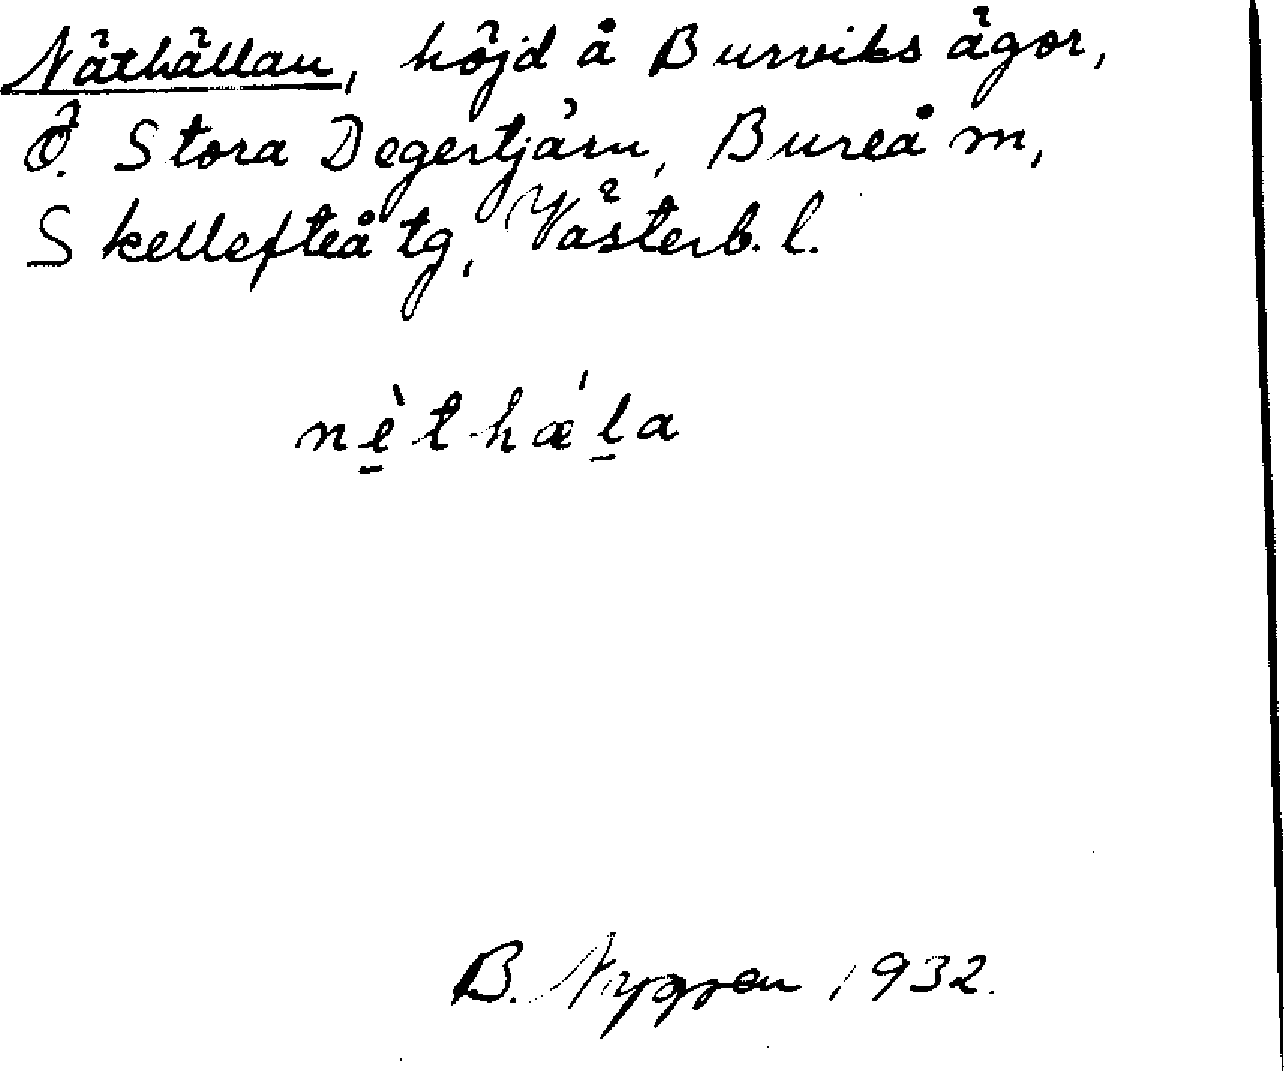 Näthällan, höjd å Burviks ägor,
Ö. Stora Degertjärn, Bureå m,
Skellefteå tg, Västerb. l.
nè̱t-hæ´ḻa
B. Nygren 1932.